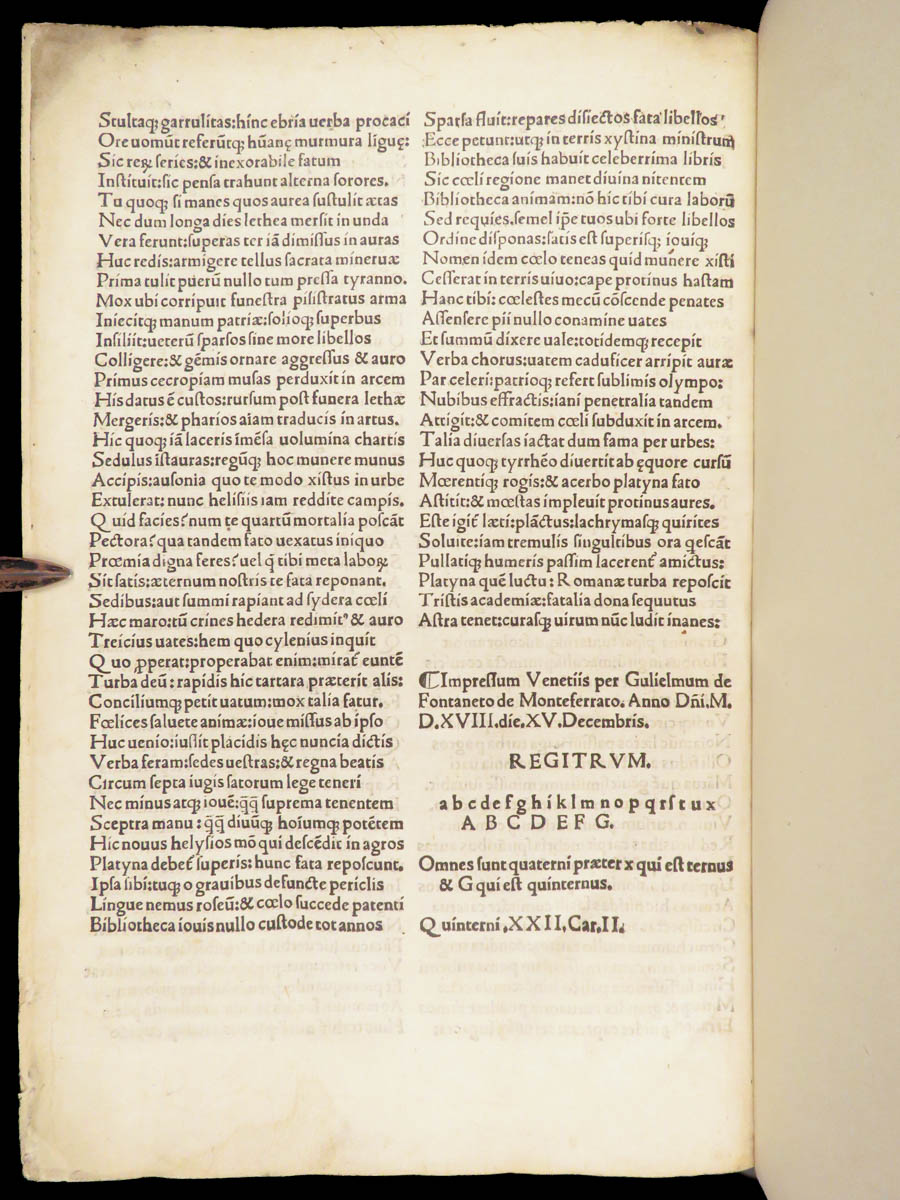 Stultaq; garrulitas:hinc ebria uerba procaci
Ore uomūt referūtq; hūanę murmura liguę:
Sic reꝝ series:& inexorabile fatum
Instituit:sic pensa trahunt alterna sorores.
Tu quoq; si manes quos aurea sustulit ætas
Nec dum longa dies lethea mersit in unda
Vera ferunt:superas ter iā dimissus in auras
Huc redis:armigere tellus sacrata mineruæ
Prima tulit puerū nullo tum pressa tyranno.
Mox ubi corripuit funestra pisistratus arma
Iniecitq; manum patriæ:solioq; superbus
Insiliit:ueterū sparsos sine more libellos
Colligere:& gēmis ornare aggressus & auro
Primus cecropiam musas perduxit in arcem
His datus ē custos:rursum post funera lethæ
Mergeris:& pharios aīam traducis in artus.
Hic quoq; iā laceris imēsa uolumina chartis
Sedulus īstauras:regūq; hoc munere munus
Accipis:ausonia quo te modo xistus in urbe
Extulerat: nunc helisiis iam reddite campis.
Quid facies?num te quartū mortalia poscāt
Pectora?qua tandem fato uexatus iniquo
Prœmia digna feres?uel q̄ tibi meta laboꝝ
Sit satis:æternum nostris te fata reponant.
Sedibus:aut summi rapiant ad sydera cœli
Hæc maro:tū crines hedera redimitꝰ & auro
Treicius uates:hem quo cylenius inquit
Quo ꝓperat:properabat enim:mirat̃ euntē
Turba deū:rapidis hic tartara præterit alis:
Conciliumq; petit uatum:mox talia fatur.
Fœlices saluete animæ:ioue missus ab ipso
Huc uenio:iussit placidis hęc nuncia dictis
Verba feram:sedes uestras:& regna beatis
Circum septa iugis satorum lege teneri
Nec minus atq; iouē:q̄q̄ suprema tenentem
Sceptra manu:q̄q̄ diuūq; hoīumq; potētem
Hic nouus helysios mō qui descēdit in agros
Platyna debet̃ superis:hunc fata reposcunt.
Ipsa sibi:tuq; o grauibus defuncte periclis
Lingue nemus roseū:& cœlo succede patenti
Bibliotheca iouis nullo custode tot annos
Sparsa fluit:repares disiectos fata libellos
Ecce petunt:utq; in terris xystina ministrum
Bibliotheca suis habuit celeberrima libris
Sic cœli regione manet diuina nitentem
Bibliotheca animam:nō hic tibi cura laborū
Sed requies.semel ip̄e tuos ubi forte libellos
Ordine disponas:satis est superisq; iouiq;
Nomen idem cœlo teneas quid munere xisti
Cesserat in terris uiuo:cape protinus hastam
Hanc tibi: cœlestes mecū cōscende penates
Assensere pii nullo conamine uates
Et summū dixere uale:totidemq; recepit
Verba chorus:uatem caducifer arripit auræ
Par celeri:patrioq; refert sublimis olympo:
Nubibus effractis:iani penetralia tandem
Attigit:& comitem cœli subduxit in arcem.
Talia diuersas iactat dum fama per urbes:
Huc quoq; tyrrhēo diuertit ab ęquore cursū
Mœrentiq; rogis:& acerbo platyna fato
Astitit:& mœstas impleuit protinus aures.
Este igit̃ læti:plāctus:lachrymasq; quirites
Soluite:iam tremulis singultibus ora qescāt
Pullatiq; humeris passim lacerent̃ amictus:
Platyna quē luctu:Romanæ turba reposcit
Tristis academiæ:fatalia dona sequutus
Astra tenet:curasq; uirum nūc ludit inanes:
¶Impressum Venetiis per Gulielmum de
Fontaneto de Monteferrato. Anno Dn̄i.M.
D.XVIII.die.XV.Decembris.
REGITRVM.
a b c d e f g h i k l m n o p q r s t u x
A B C D E F G.
Omnes sunt quaterni præter x qui est ternus
& G qui est quinternus.
Quinterni.XXII.Car.II.